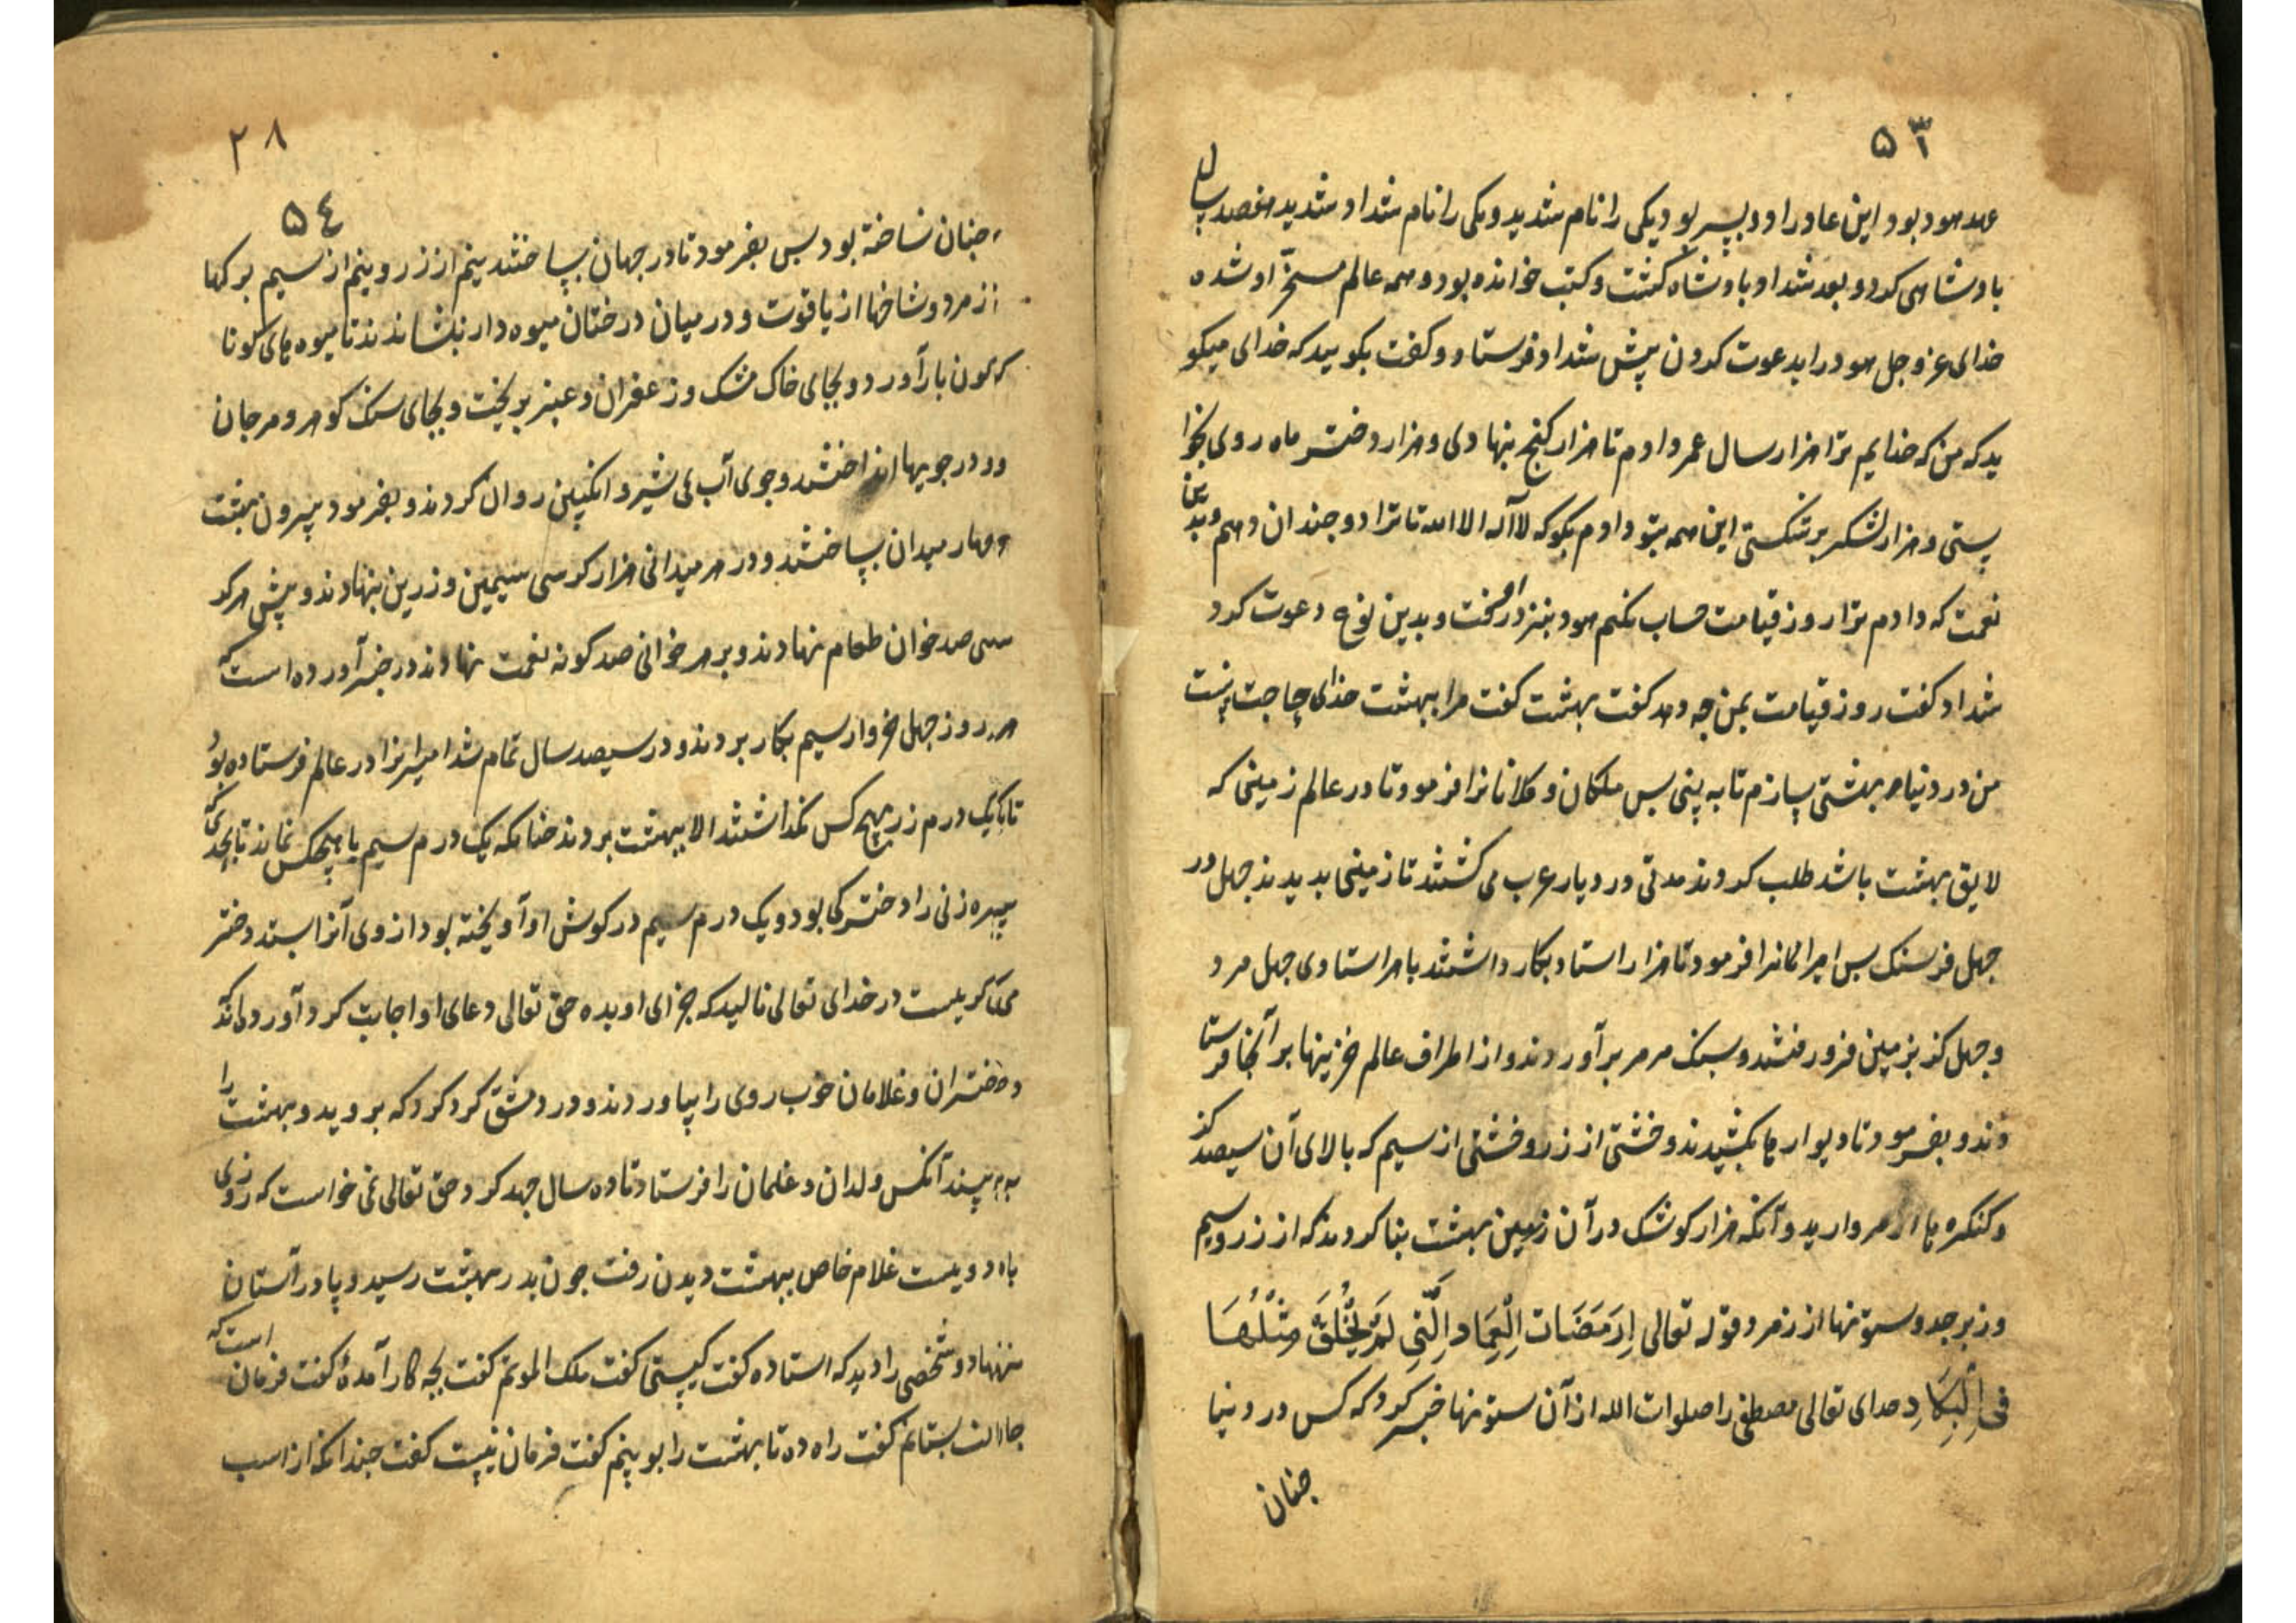 ۵۳
عهد هود بود این عاد را دو پسر بود یکی را نام شدید و یکی را نام شداد شدید هفصد سال
بادشاهی کرد و بعد شداد بادشاه گشت و کتب خوانده بود و همه عالم مسخّر او شده
خدای عز و جل هود را بدعوت کردن پیش شداد فرستاد و کفت بکویید که خدای میکو
ید که من که خدایم ترا هزار سال عمر دادم تا هزار کنج بنهادی و هزار دختر ماه روی بخوا
ستی و هزار لشکر بر شکستی این همه بتو دادم بکو که لا آله الا الله تا ترا دو چندان دهم و بدین
نعمت که دادم ترا روز قیامت حساب نکنم هود بنزد او رفت و بدین نوع دعوت کرد
شداد کفت روز قیامت بمن چه دهد کفت بهشت کفت مرا ببهشت خدای چه حاجت نیست
من در دنیا بهشتی بسازم تا به بینی بس ملکان و کلانانرا فرمود تا در عالم زمینی که
لایق بهشت باشد طلب کردند مدتی در دیار عرب می کشتند تا زمینی بدیدند جهل در
جهل فرسنک بس امرا آنرا فرمود تا هزار استاد بکار داشتند با هر استادی جهل مرد
و جهل کز بزمین فرو رفتند و سنک مرمر برآوردند و از اطراف عالم خزینها بر آنجا فرستا
دند و بفرمود تا دیوارها بکشیدند و خشتی از زر و خشتی از سیم که بالای آن سیصد کز
و کنکرها از مروارید و آنکه هزار کوشک در آن زمین بهشت بنا کردند که از زر و سیم
و زبرجد و ستونها از زمرد قوله تعالی اِرَمَ ذَات الْعِمَاد اَلَّتِی لَمْ یُخْلَقْ مِثْلُهَا
فی الْبِلَادِ خدای تعالی مصطفی را صلوات الله از آن ستونها خبر کرد که کس در دنیا
جنان
۲۸
۵٤
جنان نساخته بود بس بفرمود تا در جهان بساختند نیم از زر و نیم از سیم برکها
از زمرد و شاخها از یاقوت و در میان درختان میوه دار بنشاندند تا میوه های کونا
کون بار آورد و بجای خاک مشک و زعفران و عنبر بریخت و بجای سنک کوهر و مرجان
و در جویها انداختند و جوی آب می شیر و انکبین روان کردند و بفرمود بیرون بهشت
چهار میدان بساختند و در هر میدانی هزار کرسی سیمین و زرین بنهادند و پیش هر کر
سی صد خوان طعام نهادند و بر هر خوانی صد کونه نعمت نهادند در خبر آورده است که
هر روز جهل خروار سیم بکار بردند و در سیصد سال تمام شد امیرانرا در عالم فرستاده بود
تا یک درم زر هیچ کس نکذاشتند الا ببهشت بردند جنانکه یک درم سیم با هیچکس نماند تا بحدی که
پیره زنی را دخترکی بود و یک درم سیم در کوش او آویخته بود از وی آنرا بستد دختر
میکریست در خدای تعالی نالید که جزای او بده حق تعالی دعای او اجابت کرد آورده اند که
دختران و غلامان خوب روی را بیاوردند و در دمشق کرد کرد که بروید و بهشت را
به بینند آنکس ولدان و غلمان را فرستاد تا ده سال جهد کرد حق تعالی نمی خواست که روزی
با دویست غلام خاص ببهشت دیدن رفت جون بدر بهشت رسید و پا در آستان
بنهاد و شخصی را دید که استاده کفت کیستی کفت ملک الموتم کفت بچه کار آمدۀ کفت فرمان است که
جانت بستانم کفت راه ده تا بهشت را بوبینم کفت فرمان نیست کفت جندانکه از اسب